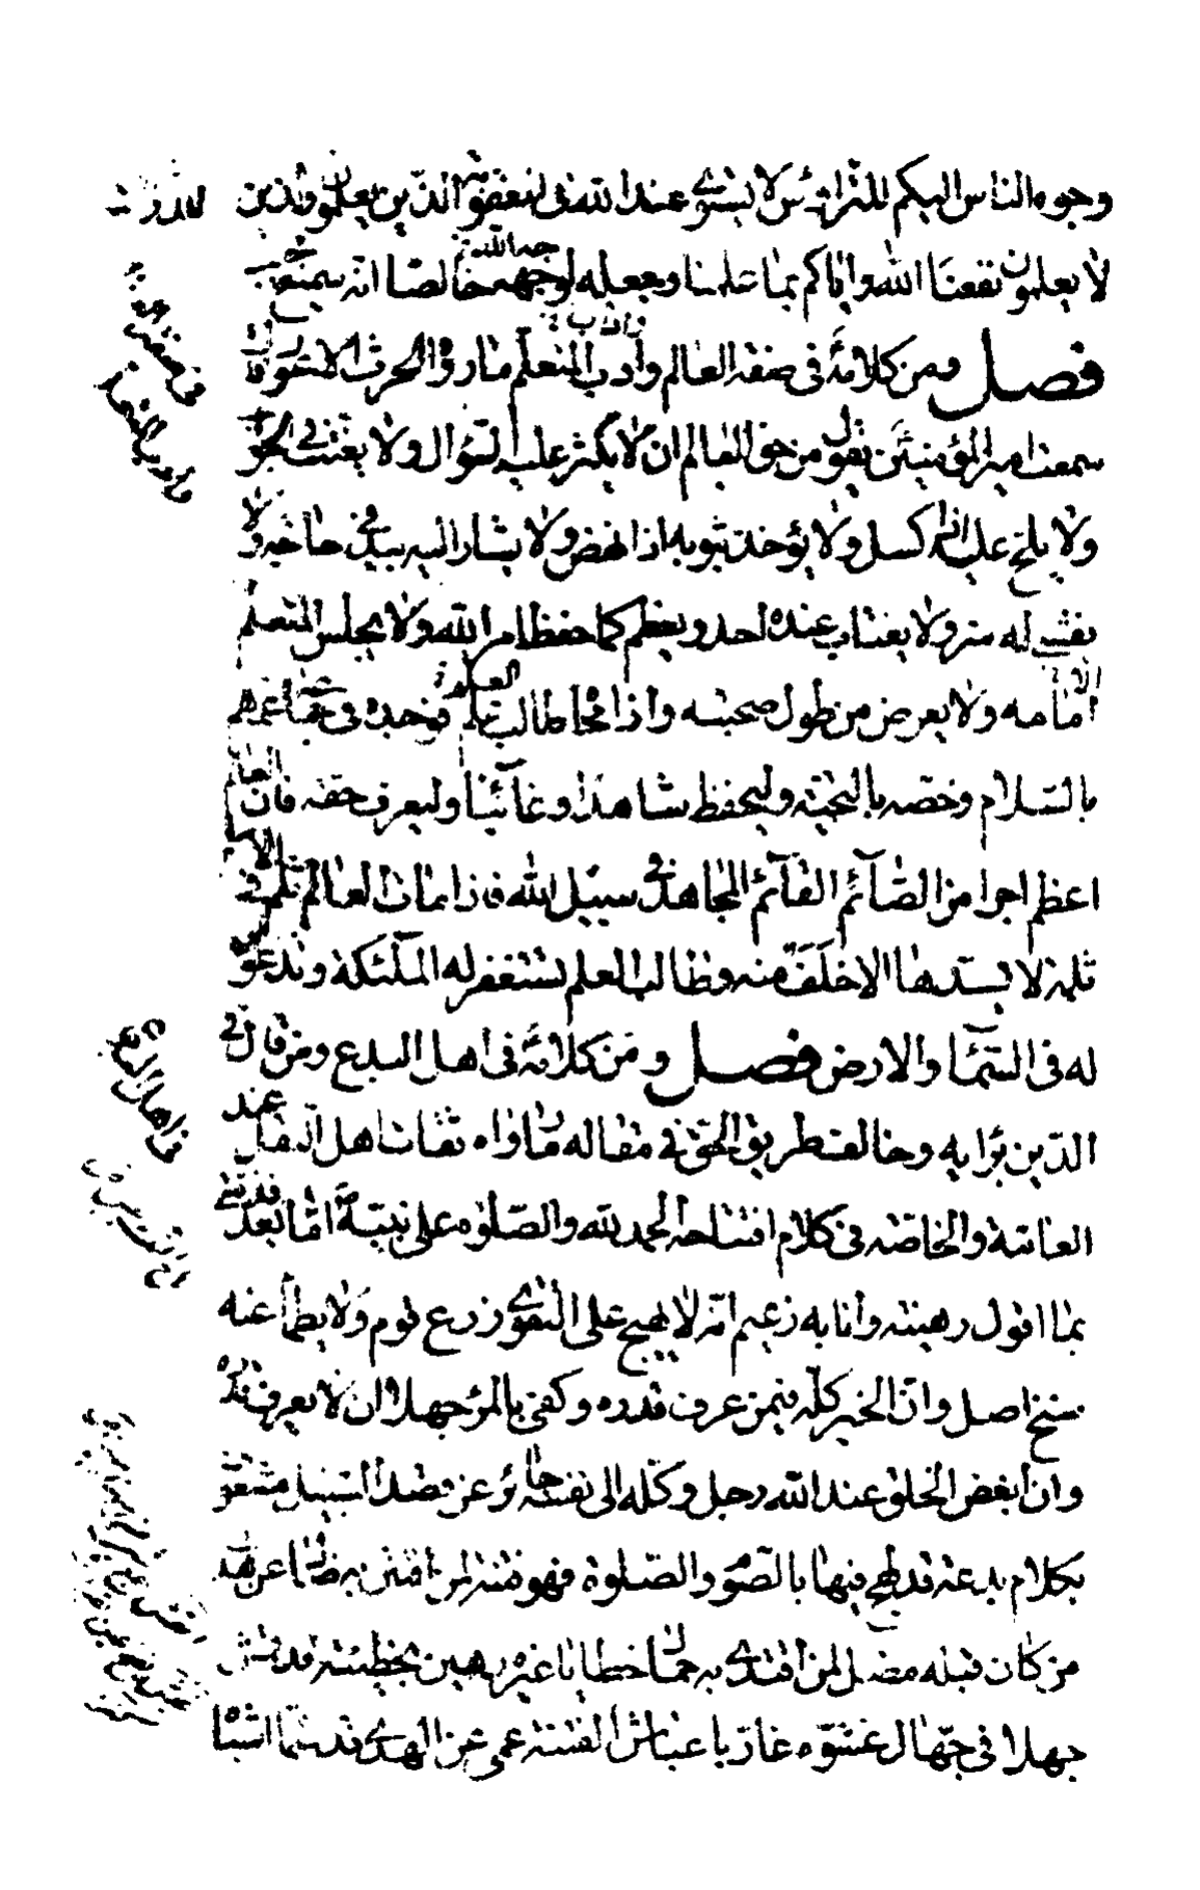 وجوه الناس اليكم للترأس لا يستوى عند الله فى العقوبة الذين يعلمون والذين
لا يعلمون نفعنا الله واياكم بما علمنا وجعله لوجهه خالصا انه سميع مجيب
فصل ومن كلامه فى صفة العالم وأدب المتعلم ما رواه الحرث الاعور قال
سمعت امير المؤمنين يقول من حق العالم ان لا يكثر عليه السؤال ولا يعنت فى الجواب
ولا يلح عليه اذا كسل ولا يؤخذ بثوبه اذا نهض ولا يشار اليه بيد فى حاجة ولا
يفشى له سر ولا يغتاب عنده احد ويعظم كما حفظ امر الله ولا يجلس المتعلم
الا امامه ولا يعرض من طول صحبته واذا جاءه طالب علم فوجده فى جماعة عمهم
بالسلام وخصه بالتحية وليحفظ شاهدا وغائبا وليعرف حقه فان العالم
اعظم اجرا من الصائم القائم المجاهد فى سبيل الله فاذا مات العالم ثلم فى الاسلام
ثلمة لا يسدها الا خلف منه وطالب العلم تستغفر له الملئكة وتدعو
له فى السماء والارض فصل ومن كلامه فى اهل البدع ومن قال فى
الدين برايه وخالف طريق الحق فى مقاله ما رواه ثقات اهل النقل عند
العامة والخاصة فى كلام افتتاحه الحمد لله والصلوة على نبيه اما بعد فذمتى
بما اقول رهينة وأنا به زعيم انه لا يهيج على التقوى زرع قوم ولا يظمأ عنه
سنخ اصل وان الخير كله فيمن عرف قدره وكفى بالمرء جهلا ان لا يعرف قدره
وان أبغض الخلق عند الله رجل وكله الى نفسه جائر عن قصد السبيل مشغوف
بكلام بدعة قد لهج فيها بالصوم والصلوة فهو فتنة لمن افتتن به ضال عن هدى
من كان قبله مضل لمن اقتدى به حمال خطايا غيره رهين بخطيئته قد قمش
جهلا فى جهال غشوه غار باغباش الفتنة عمى عن الهدى قد سماه اشباه